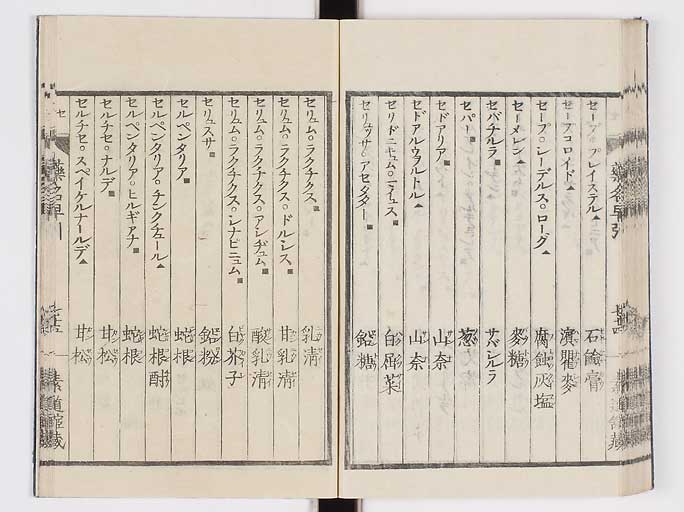 セープ。プレイステル▲ 石鹼膏
セープコロイド▲ 瀆瞿麥
セープ。シーデルス。ローグ▲ 腐蝕灰塩
セーメレン▲ 麥糖
セバチルラ■ サバシルラ
セパー■ 葱
セドアリア■ 山奈
セドアルウヲルトル▲ 山奈
セリドニュム。ニイュス■ 白屈菜
アセタター■ 鉛糖
セリュム。ラクチクス■ 乳清
セリュム。ラクチクス。ドルシス■ 甘乳清
セリュム。ラクチクス。アシヂュム■ 酸乳清
セリュム。ラクチクス。シナピニュム■ 白芥子
セリュスサ■ 鉛粉
セルペンタリア■ 蛇根
セルペンタリア。チンクチュール▲ 蛇根酎
セルペンタリア。ヒルギアナ■ 蛇根
セルチセ。ナルデ■ 甘松
セルチセ。スペイケルナールデ▲ 甘松
セ
藥名早引
七十四
素道館蔵